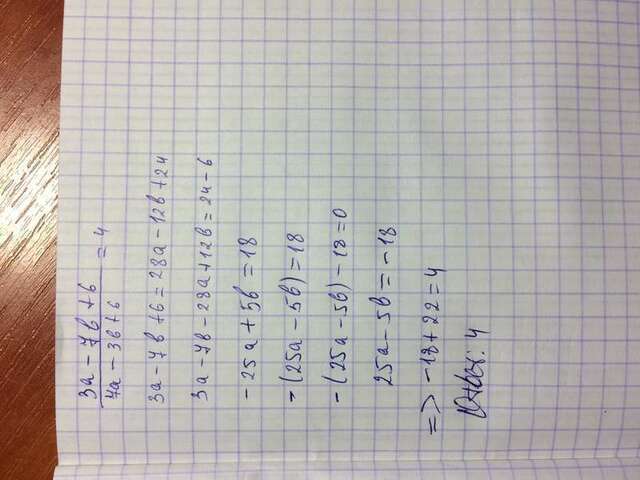 3a - 7b + 6
7a - 3b + 6
= 4
3a - 7b + 6 = 28a - 12b + 24
3a - 7b - 28a + 12b = 24 - 6
-25a + 5b = 18
-(25a - 5b) = 18
-(25a - 5b) - 18 = 0
25a - 5b = -18
=> -18 + 22 = 4
Ответ: 4